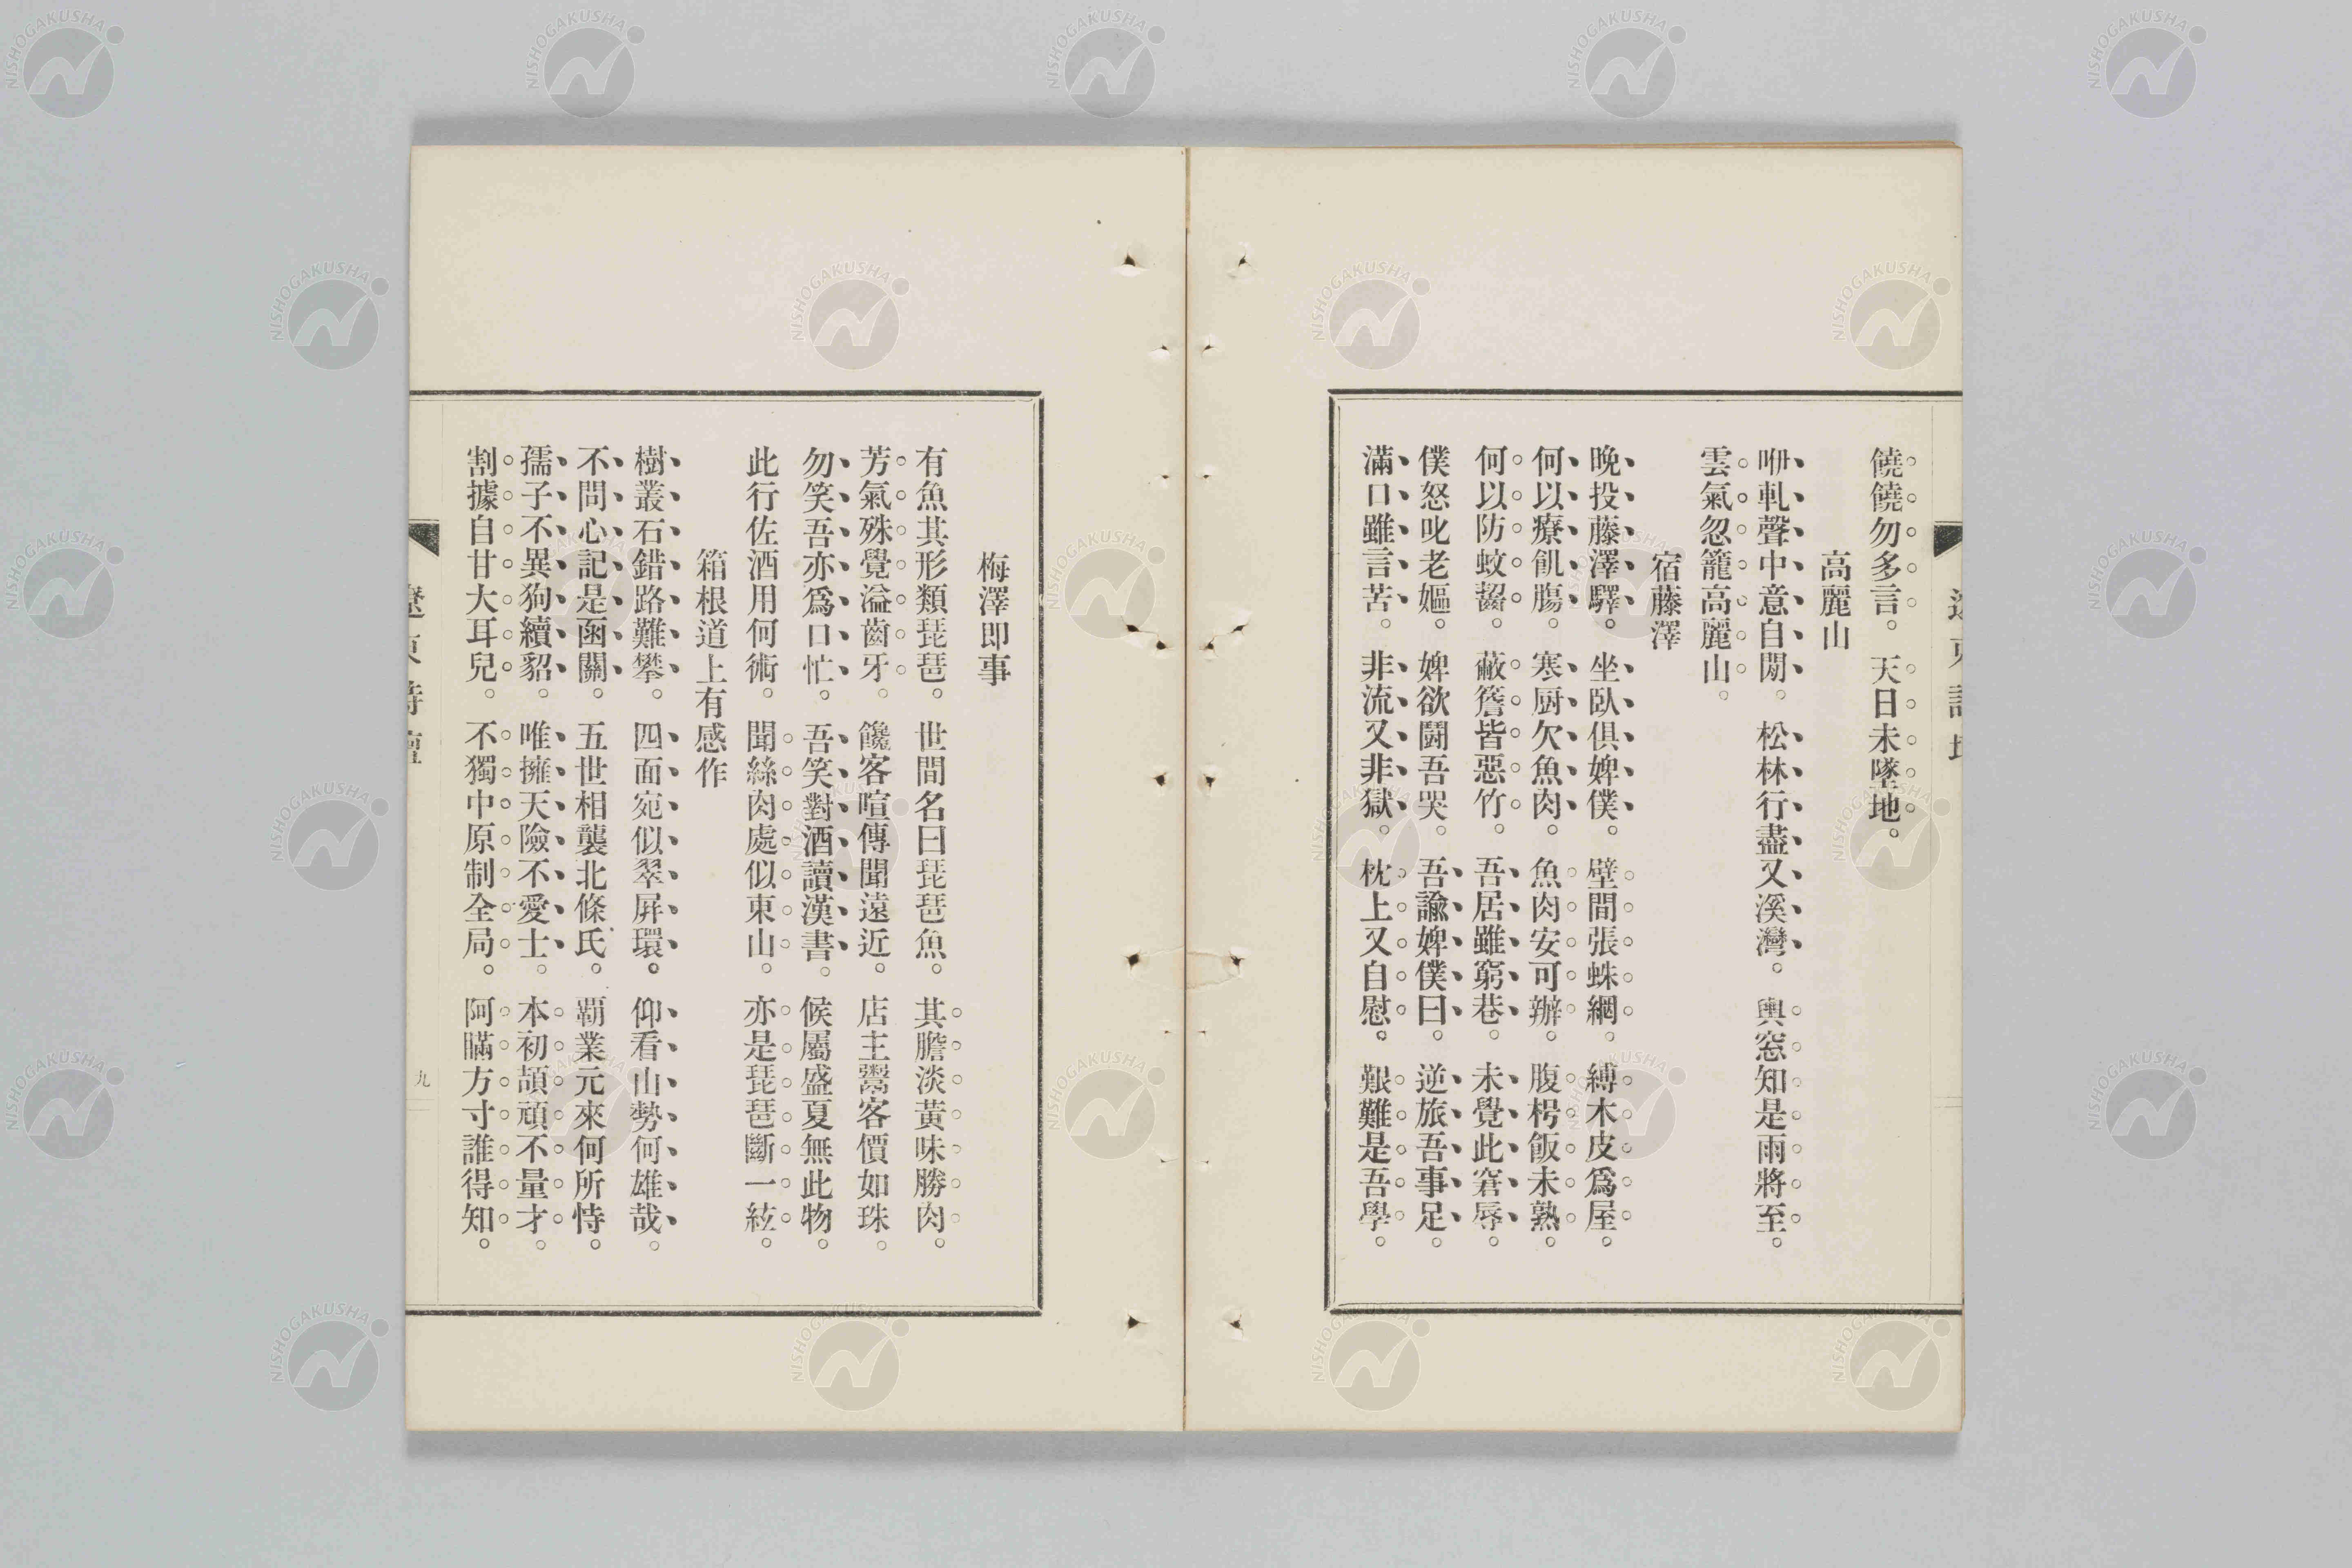 饒饒勿多言。天日未墜地。
高麗山
咿軋聲中意自閒。松林行盡又溪灣。輿窓知是雨將至。
雲氣忽籠高麗山。
宿藤澤
晩投藤澤驛。坐臥俱婢僕。壁間張蛛網。縛木皮爲屋。
何以療飢膓。寒厨欠魚肉。魚肉安可辦。腹枵飯未熟。
何以防蚊齧。蔽簷皆惡竹。吾居雖窮巷。未覺此窘辱。
僕怒叱老嫗。婢欲鬪吾哭。吾諭婢僕曰。逆旅吾事足。
滿口雖言苦。非流又非獄。枕上又自慰。艱難是吾學。
梅澤即事
有魚其形類琵琶。世間名曰琵琶魚。其膽淡黃味勝肉。
芳氣殊覺溢齒牙。饞客喧傳聞遠近。店主鬻客價如珠。
勿笑吾亦爲口忙。吾笑對酒讀漢書。候屬盛夏無此物。
此行佐酒用何術。聞絲肉處似東山。亦是琵琶斷一絃。
箱根道上有感作
樹叢石錯路難攀。四面宛似翠屛環。仰看山勢何雄哉。
不問心記是函關。五世相襲北條氏。覇業元來何所恃。
孺子不異狗續貂。唯擁天險不愛士。本初頡頏不量才。
割據自甘大耳兒。不獨中原制全局。阿瞞方寸誰得知。
九
NISHOGAKUSHA